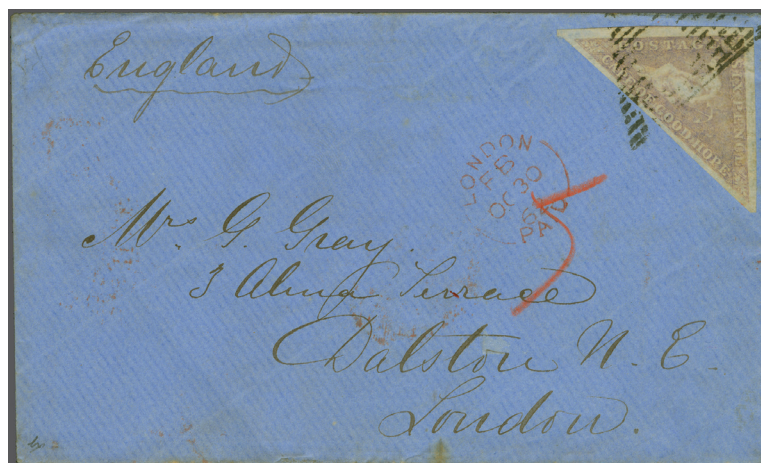 England
POSTAGE
SIX PENCE
GOOD HOPE
LONDON
OC 30
PAID
Mrs G. Gray.
3 Alma Terrace
Dalston N. E.
London.